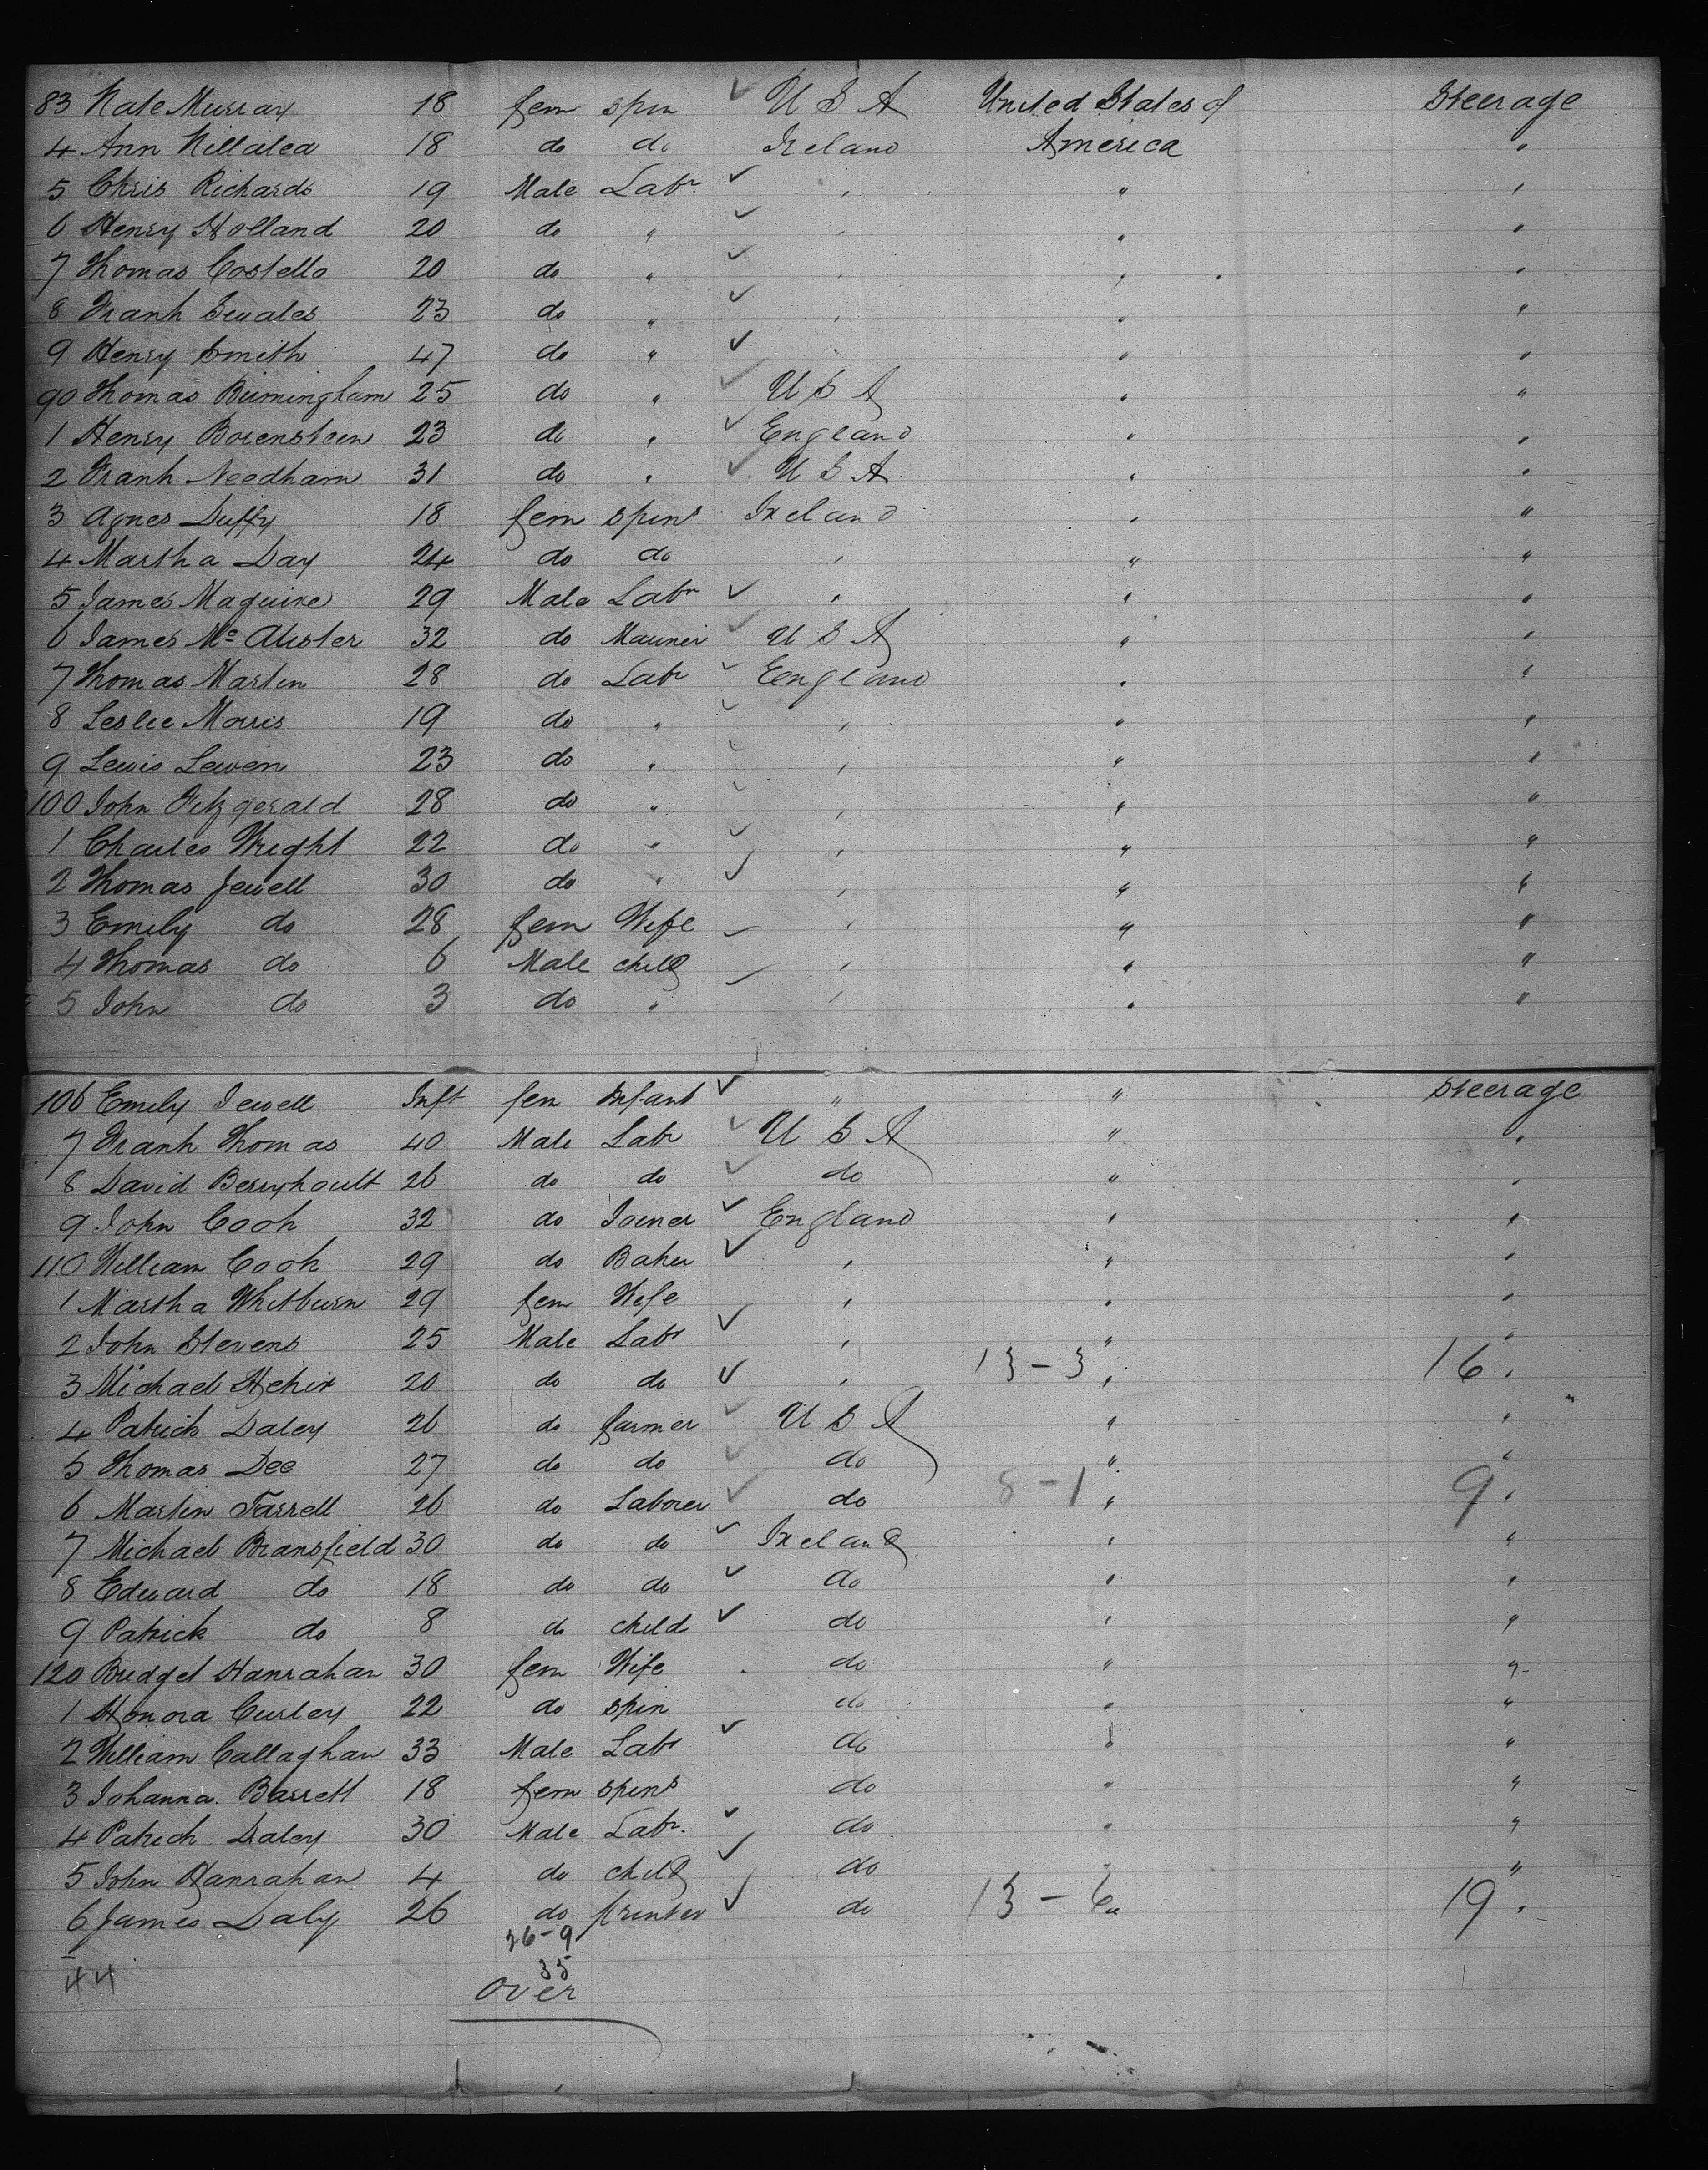 83 Kate Murray 18 fem spin ✓ U S A United States of Steerage
4 Ann Killalea 18 do do Ireland America "
5 Chris Richards 19 Male Labr ✓ " " "
6 Henry Holland 20 do " ✓ " " "
7 Thomas Costello 20 do " ✓ " " "
8 Frank 23 do " ✓ " " "
9 Henry Smith 47 do " ✓ " " "
90 Thomas Birmingham 25 do " ✓ U S A " "
1 Henry Borenstein 23 do " ✓ England " "
2 Frank Needham 31 do " ✓ U S A " "
3 Agnes Duffy 18 fem spins Ireland " "
4 Martha Day 24 do do " " "
5 James Maguire 29 Male Labr ✓ " " "
6 James Mc Alister 32 do ✓ U S A " "
7 Thomas Martin 28 do Labr ✓ England " "
8 Leslie Morris 19 do " ✓ " " "
9 Lewis Lewen 23 do " ✓ " " "
100 John Fitzgerald 28 do " ✓ " " "
1 Charles Wright 22 do " ✓ " " "
2 Thomas Jewell 30 do " ✓ " " "
3 Emily do 28 fem Wife ✓ " " "
4 Thomas do 6 Male child ✓ " " "
5 John do 3 do " " " "
106 Emily Jewell Inft fem Infant ✓ " " Steerage
7 Frank Thomas 40 Male Labr ✓ U S A " "
8 David Berryhoult 26 do do ✓ do " "
9 John Cook 32 do Joiner ✓ England " "
110 William Cook 29 do Baker ✓ " " "
1 Martha Whitburn 29 fem Wife " " "
2 John Stevens 25 Male Labr ✓ " " "
3 Michael Hehir 20 do do ✓ " 13-3 " 16 "
4 Patrick Daley 26 do farmer ✓ U S A " "
5 Thomas Dee 27 do do ✓ do " "
6 Martin Farrell 26 do Laborer ✓ do 8-1 " 9 "
7 Michael Bransfield 30 do do ✓ Ireland " "
8 Edward do 18 do do ✓ do " "
9 Patrick do 8 do child ✓ do " "
120 Bridget Hanrahan 30 fem Wife do " "
1 Honora Curley 22 do spin do " "
2 William Callaghan 33 Male Labr ✓ do " "
3 Johanna Barrett 18 fem spins do " "
4 Patrick Daley 30 Male Labr. ✓ do " "
5 John Hanrahan 4 do child ✓ do " "
6 James Daly 26 do printer ✓ do 13-6 " 19 "
26-9
44 35
Over